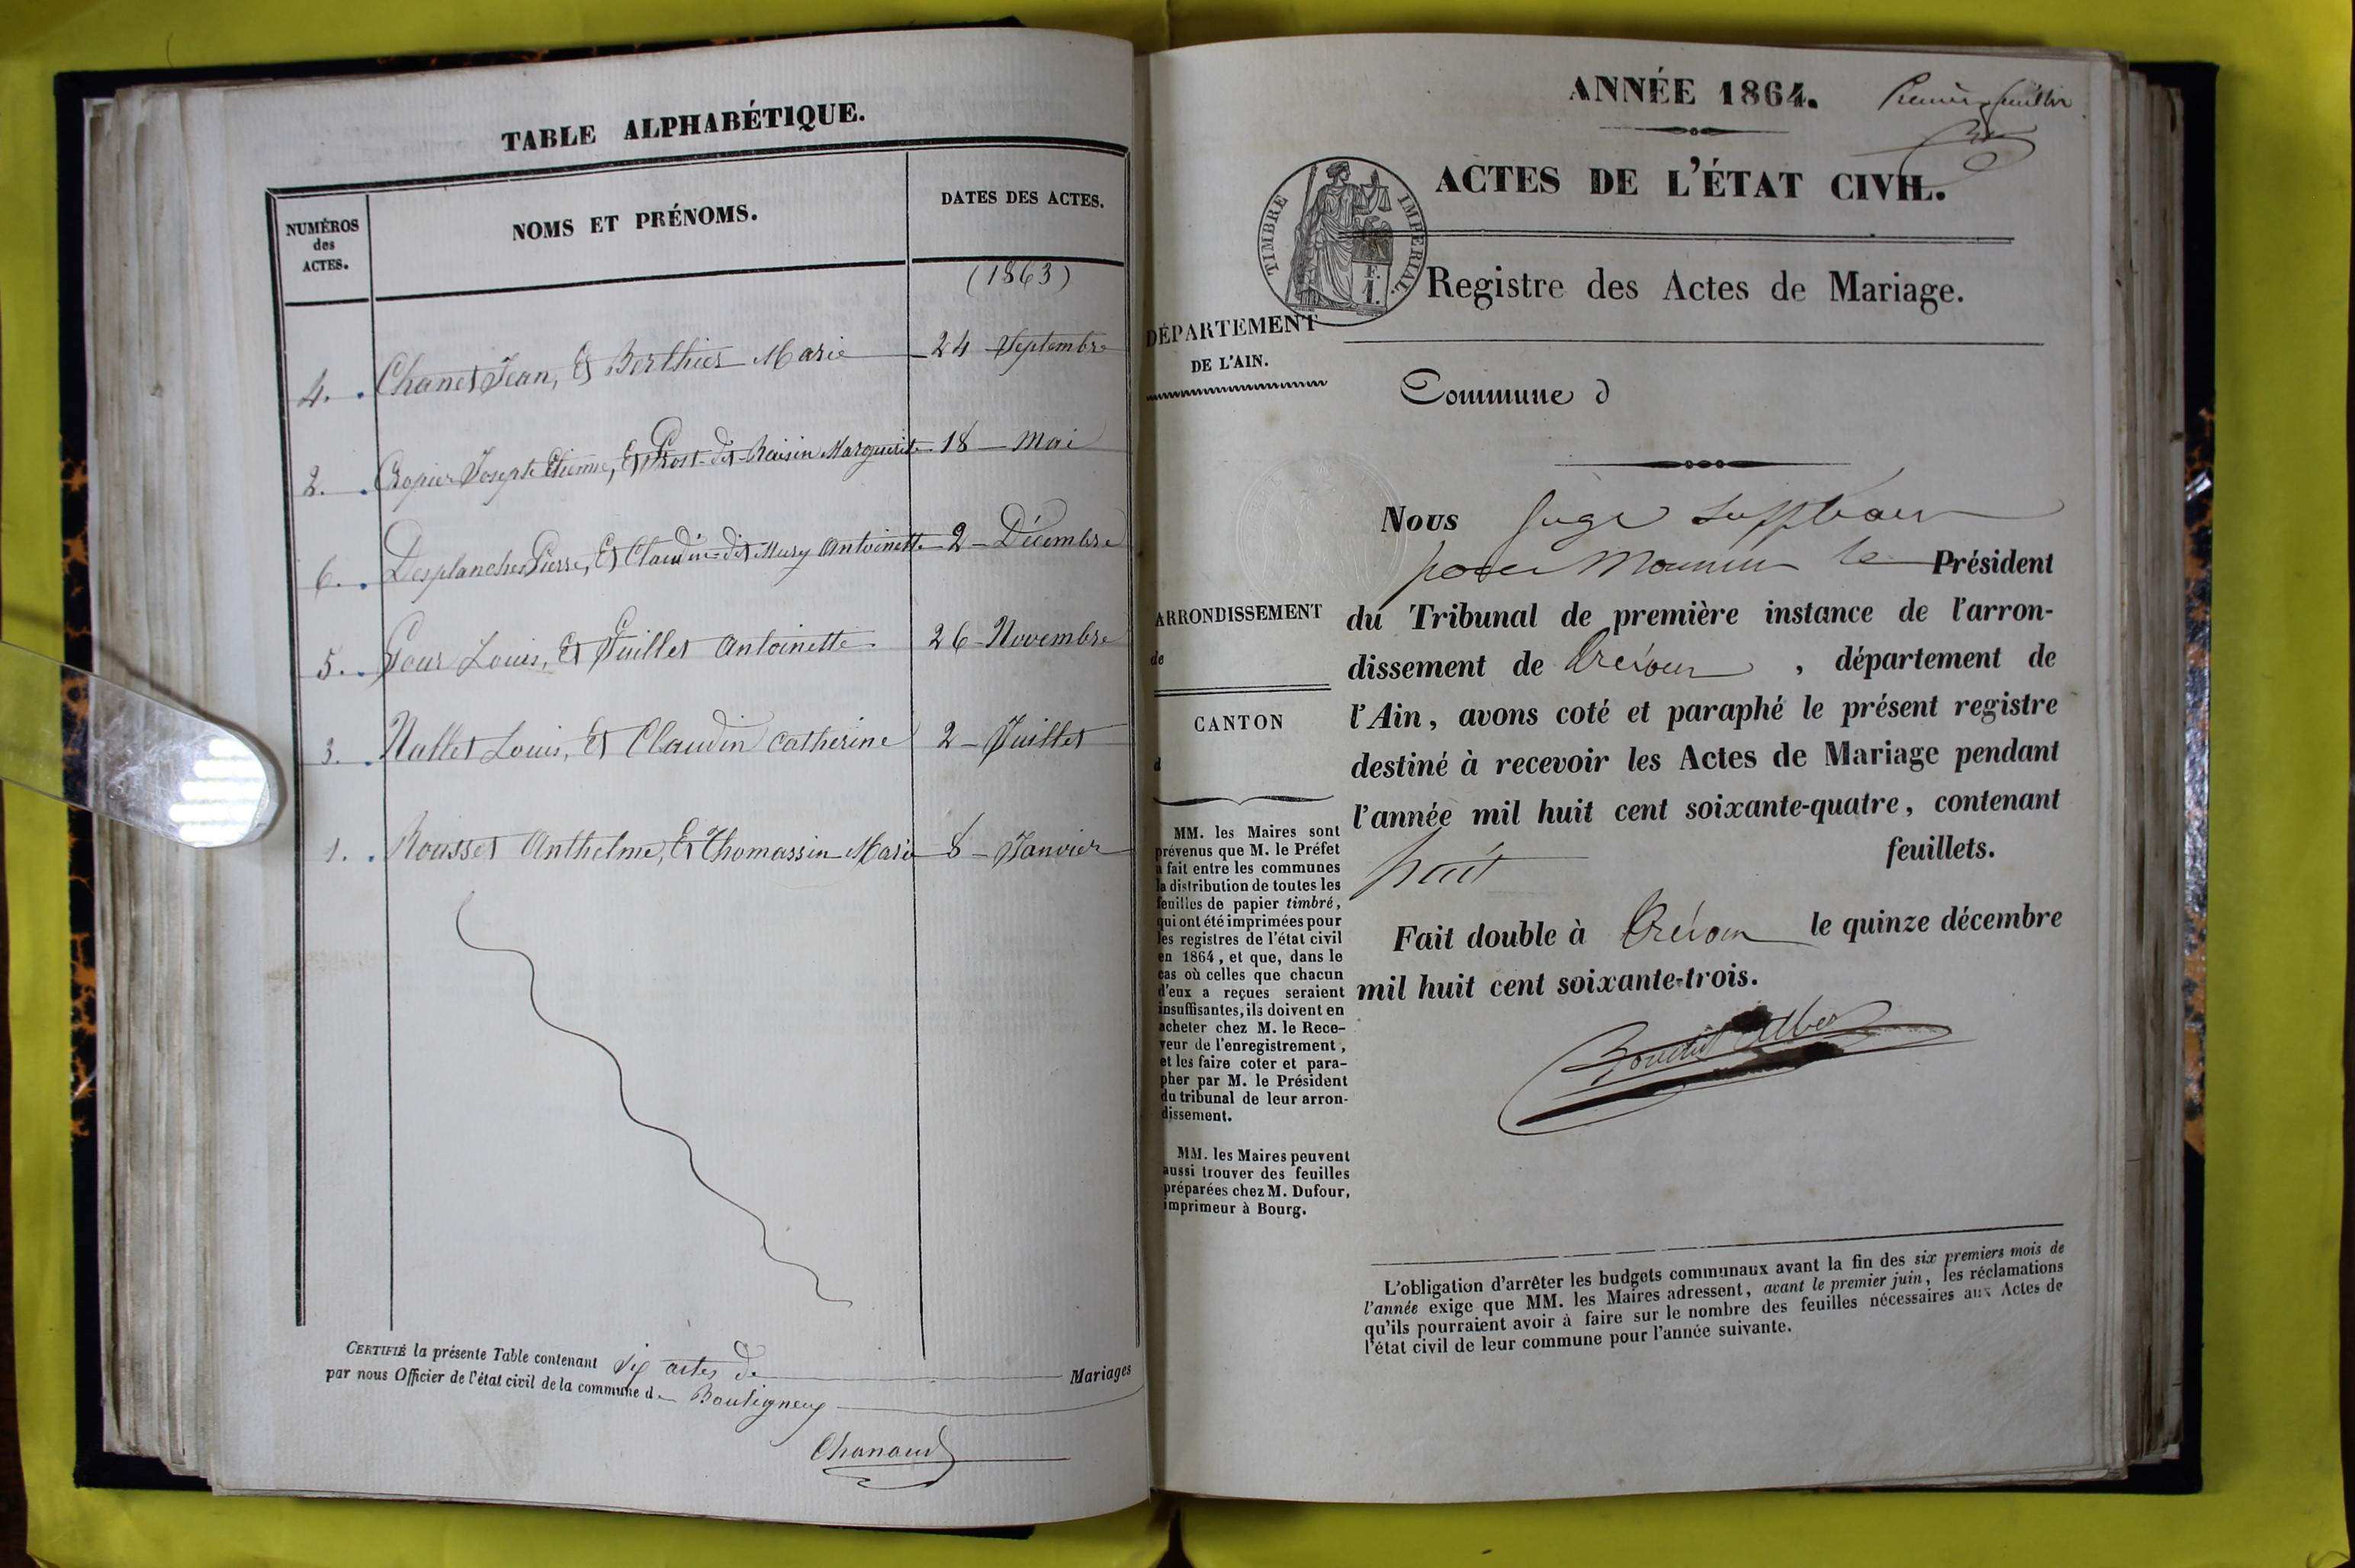 TABLE ALPHABÉTIQUE.
NUMÉROS
des
ACTES.
NOMS ET PRÉNOMS.
DATES DES ACTES.
(1863)
4. Chanet Jean, Et Berthier Marie 24 Septembre
2. Cropier Joseph Etienne, Et Prost-dit-Raisin Marguerite 18 Mai
6. Desplanches Pierre, Et Claudin-dit-Mury Antoinette 2 Décembre
5. Gour Louis, Et Guillet Antoinette 26 Novembre
3. Nallet Louis, Et Claudin Catherine 2 Juillet
1. Rousset Anthelme, Et Thomassin Marie 8 Janvier
CERTIFIÉ la présente Table contenant six actes de Mariages
par nous Officier de l'état civil de la commune de Bouligneux
Chanaud
ANNÉE 1864.
Premier feuillet
ACTES DE L'ÉTAT CIVIL.
TIMBRE IMPÉRIAL.
Registre des Actes de Mariage.
DÉPARTEMENT
DE L'AIN.
Commune d
ARRONDISSEMENT
de
CANTON
d
MM. les Maires sont
prévenus que M. le Préfet
a fait entre les communes
la distribution de toutes les
feuilles de papier timbré,
qui ont été imprimées pour
les registres de l'état civil
en 1864, et que, dans le
cas où celles que chacun
d'eux a reçues seraient
insuffisantes, ils doivent en
acheter chez M. le Rece-
veur de l'enregistrement,
et les faire coter et para-
pher par M. le Président
du tribunal de leur arron-
dissement.
MM. les Maires peuvent
aussi trouver des feuilles
préparées chez M. Dufour,
imprimeur à Bourg.
Nous Juge suppléant
pour Monsieur le Président
du Tribunal de première instance de l'arron-
dissement de Trévoux, département de
l'Ain, avons coté et paraphé le présent registre
destiné à recevoir les Actes de Mariage pendant
l'année mil huit cent soixante-quatre, contenant
huit feuillets.
Fait double à Trévoux le quinze décembre
mil huit cent soixante-trois.
L'obligation d'arrêter les budgets communaux avant la fin des six premiers mois de
l'année exige que MM. les Maires adressent, avant le premier juin, les réclamations
qu'ils pourraient avoir à faire sur le nombre des feuilles nécessaires aux Actes de
l'état civil de leur commune pour l'année suivante.